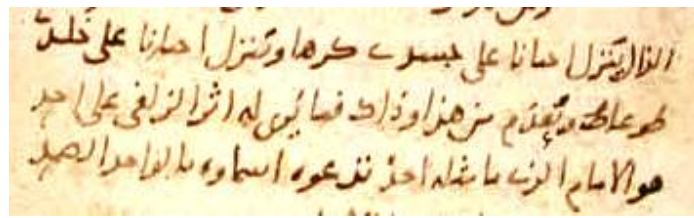 الذال ينزل احيانا على جسدي كرها وينزل احيانا على خلدي
طوعا ويعدم من هذا وذاك فما يرى له اثر الزلفى على احد
هو الامام الذي ما مثله احد تدعوه اسماوه بالواحد الصمد